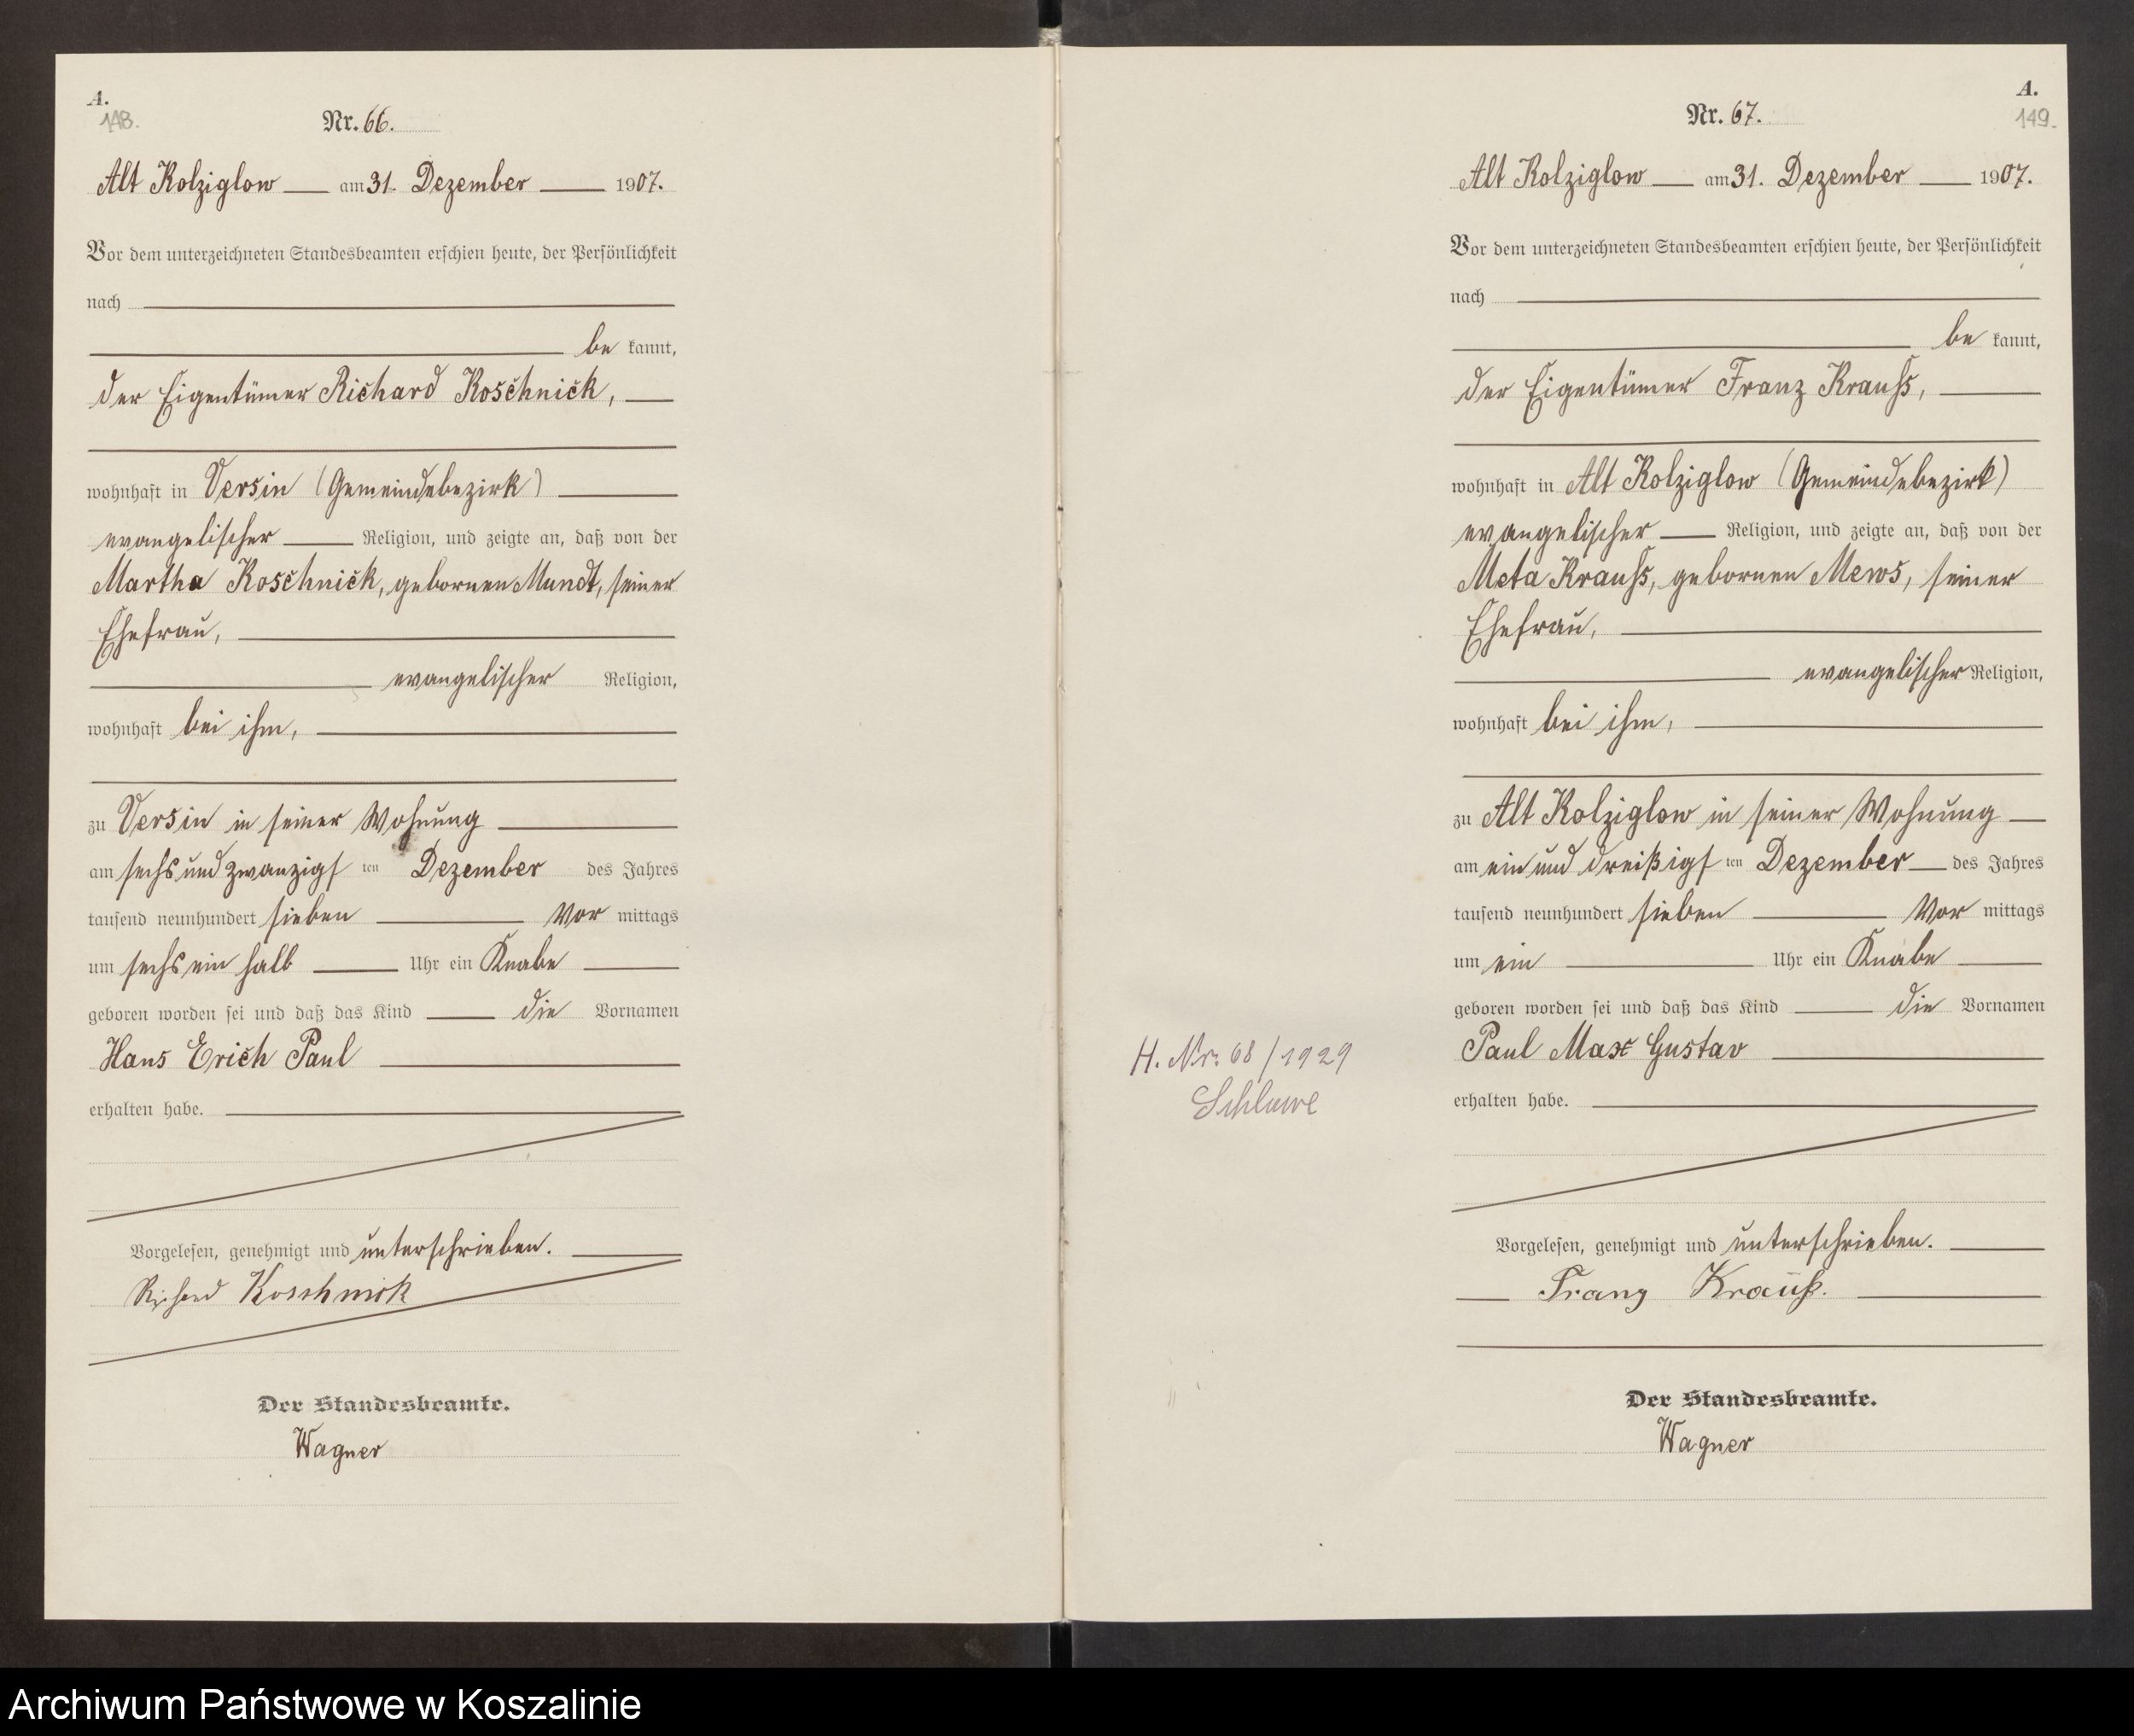 A.
148.
Nr. 66.
Alt Kolziglow am 31. Dezember 1907.
Vor dem unterzeichneten Standesbeamten erschien heute, der Persönlichkeit
nach
be kannt,
der Eigentümer Richard Koschnick,
wohnhaft in Versin (Gemeindebezirk)
evangelischer Religion, und zeigte an, daß von der
Martha Koschnick, gebornen Mundt, seiner
Ehefrau,
evangelischer Religion,
wohnhaft bei ihm,
zu Versin in seiner Wohnung
am sechs und zwanzigsten Dezember des Jahres
tausend neunhundert sieben Vor mittags
um sechs ein halb Uhr ein Knabe
geboren worden sei und daß das Kind die Vornamen
Hans Erich Paul
erhalten habe.
Vorgelesen, genehmigt und unterschrieben.
Richard Koschnick
Der Standesbeamte.
Wagner
A.
149.
Nr. 67.
Alt Kolziglow am 31. Dezember 1907.
Vor dem unterzeichneten Standesbeamten erschien heute, der Persönlichkeit
nach
be kannt,
der Eigentümer Franz Krauss,
wohnhaft in Alt Kolziglow (Gemeindebezirk)
evangelischer Religion, und zeigte an, daß von der
Meta Krauss, gebornen Mews, seiner
Ehefrau,
evangelischer Religion,
wohnhaft bei ihm,
zu Alt Kolziglow in seiner Wohnung
am ein und dreißigsten Dezember des Jahres
tausend neunhundert sieben Vor mittags
um ein Uhr ein Knabe
geboren worden sei und daß das Kind die Vornamen
Paul Max Gustav
erhalten habe.
H. Nr. 68/1929
Schlawe
Vorgelesen, genehmigt und unterschrieben.
Franz Krauß.
Der Standesbeamte.
Wagner
Archiwum Państwowe w Koszalinie